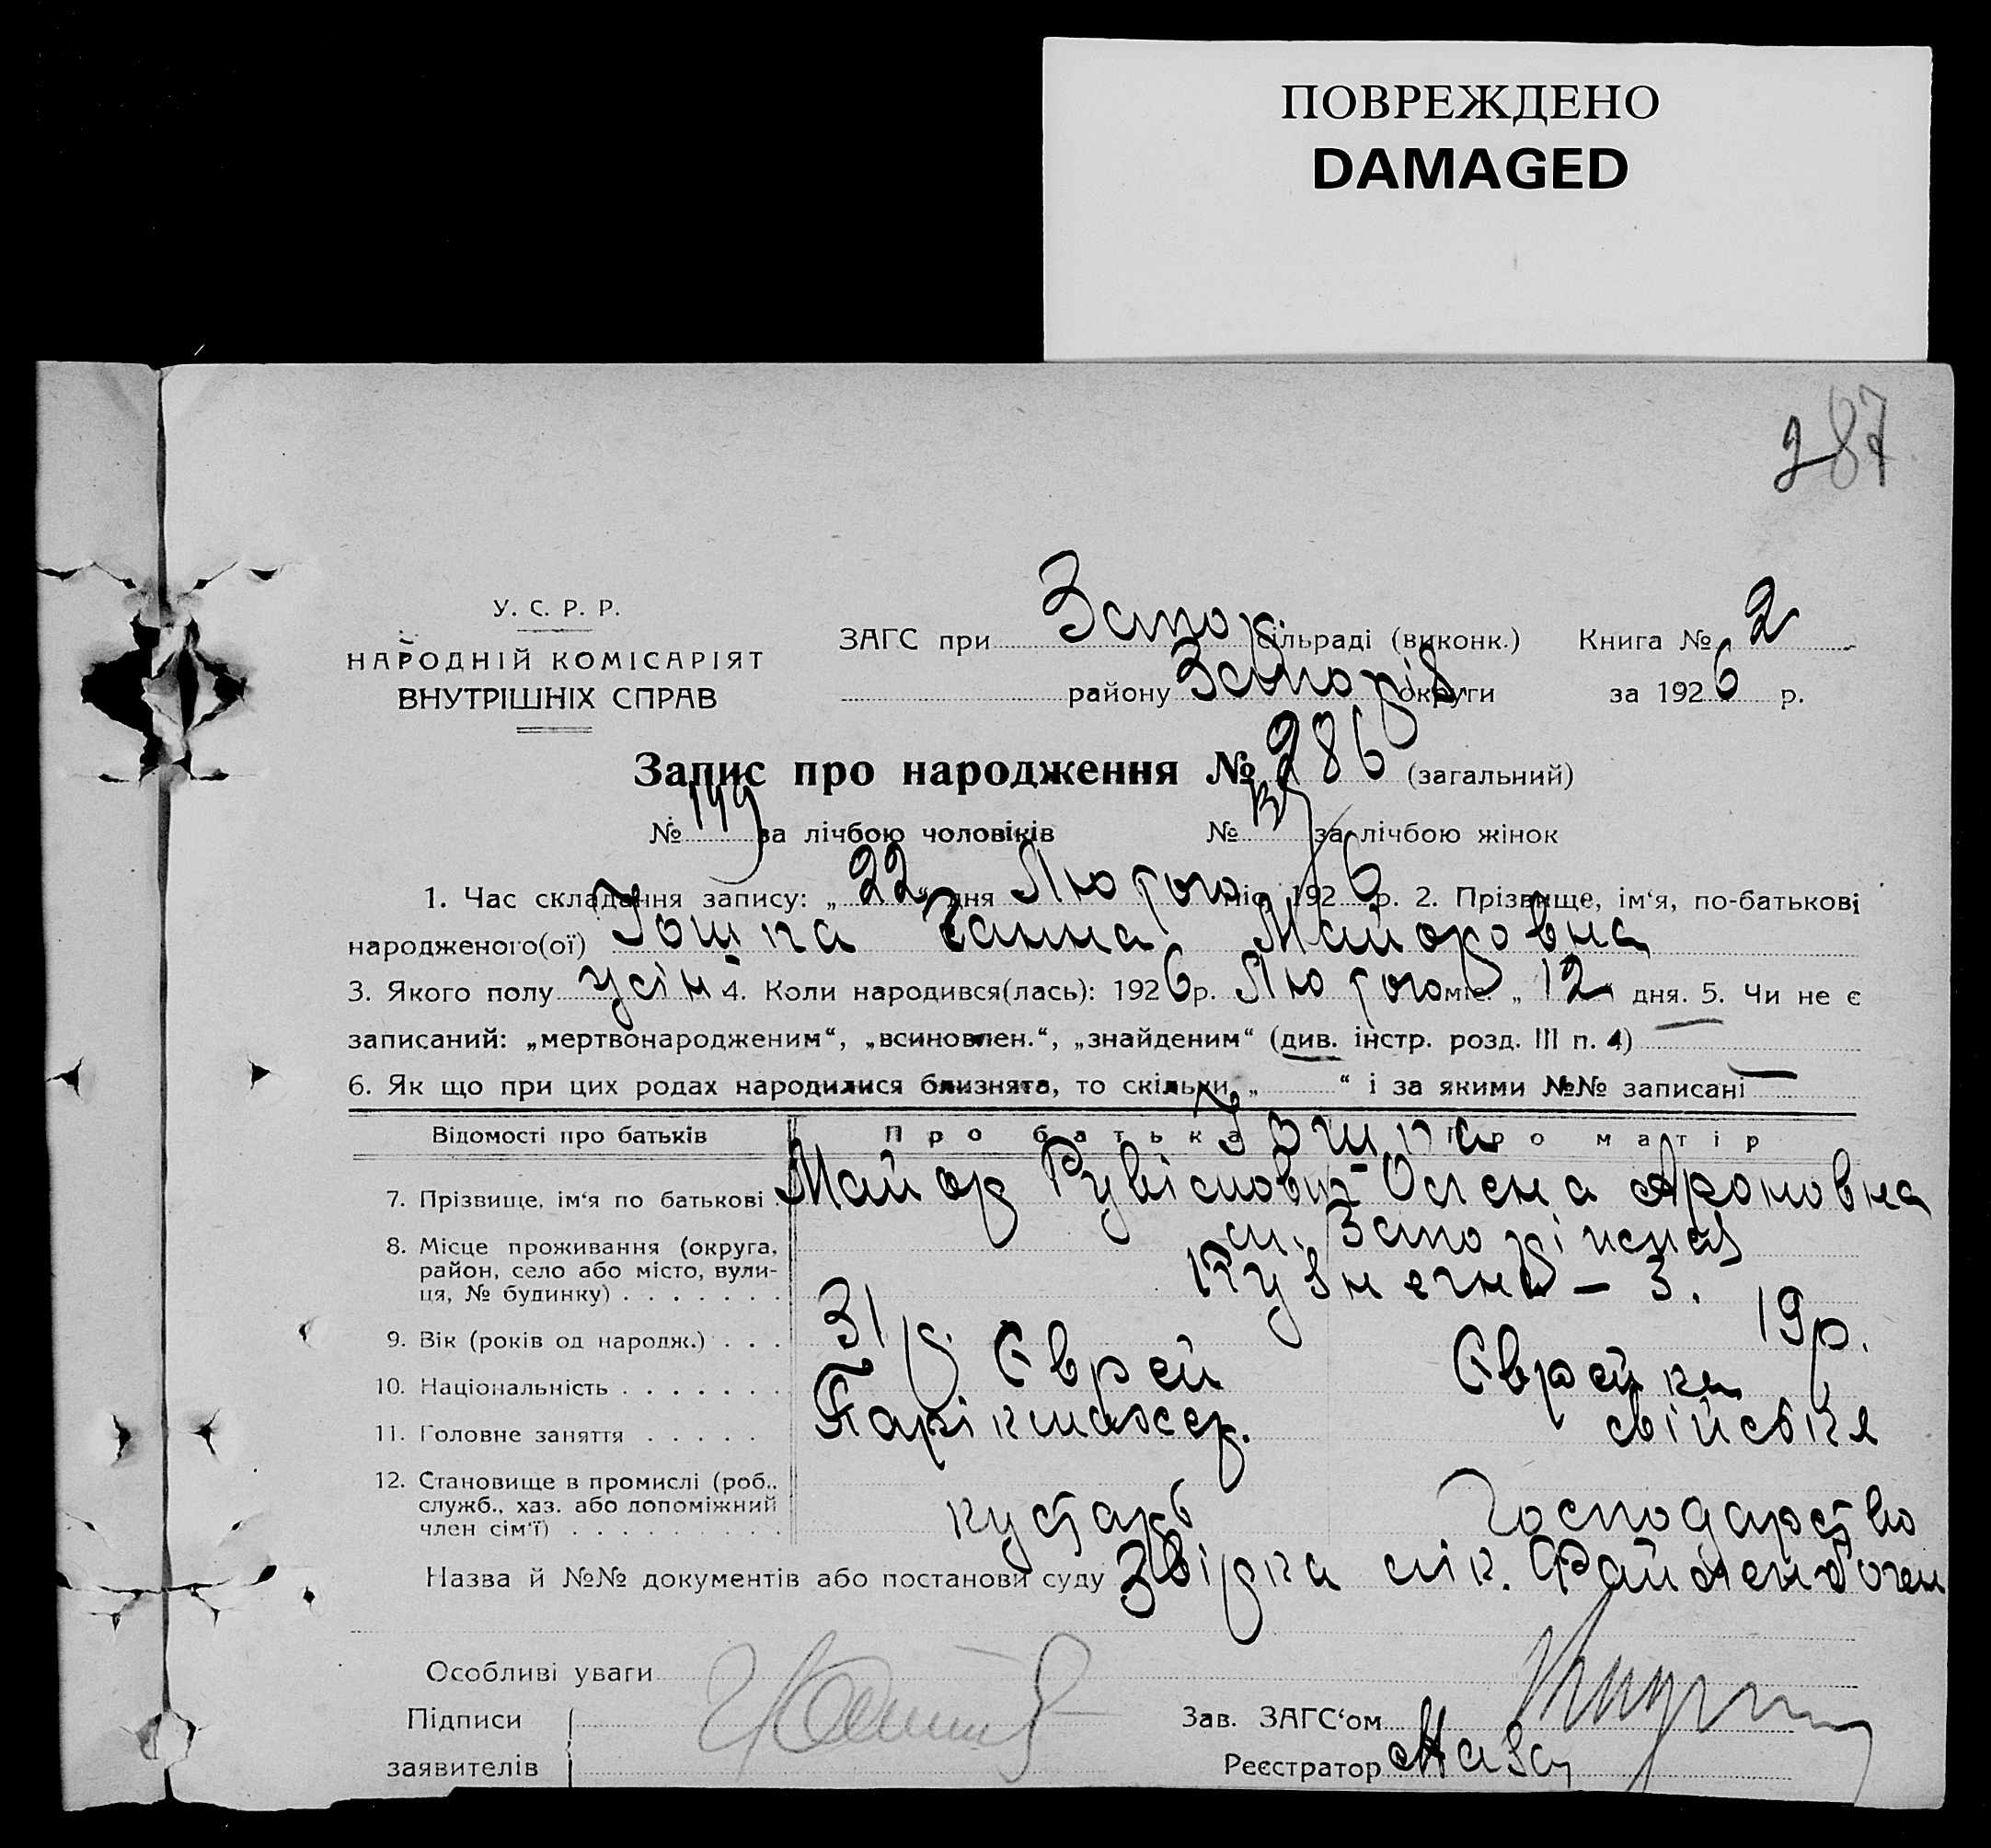 ПОВРЕЖДЕНО
DAMAGED
287
У. С. Р. Р.
НАРОДНІЙ КОМІСАРІЯТ
ВНУТРІШНІХ СПРАВ
ЗАГС при Запор сільраді (виконк.) Книга № 2
району Запоріз округи за 1926 р.
Запис про народження № 286 (загальний)
№ 149 за лічбою чоловіків № 137 за лічбою жінок
1. Час складання запису: „22“ дня Лютого міс. 1926 р. 2. Прізвище, ім‘я, по-батькові
народженого(ої) Ганна Майоровна
3. Якого полу 4. Коли народився(лась): 1926 р. Лютого міс. „12 дня. 5. Чи не є
записаний: „мертвонародженим“, „всиновлен.“, „знайденим“ (див. інстр. розд. III п. 4) —
6. Як що при цих родах народилися близнята, то скільки „ “ і за якими №№ записані —
Відомості про батьків Про батька Про матір
7. Прізвище, ім‘я по батькові Майор Рувімович - Олена Ароновна
8. Місце проживання (округа, м. Запоріжжя
район, село або місто, вули- Кузнечна — 3.
ця, № будинку)
9. Вік (років од народж.) 31 р. 19 р.
10. Національність Єврей Єврейка
11. Головне заняття Парікмахер. свійське
12. Становище в промислі (роб.,
служб., хаз. або допоміжний кустарь господарство
член сім‘ї)
Назва й №№ документів або постанови суду лік.
Особливі уваги
Підписи Зав. ЗАГС‘ом
заявителів Реєстратор